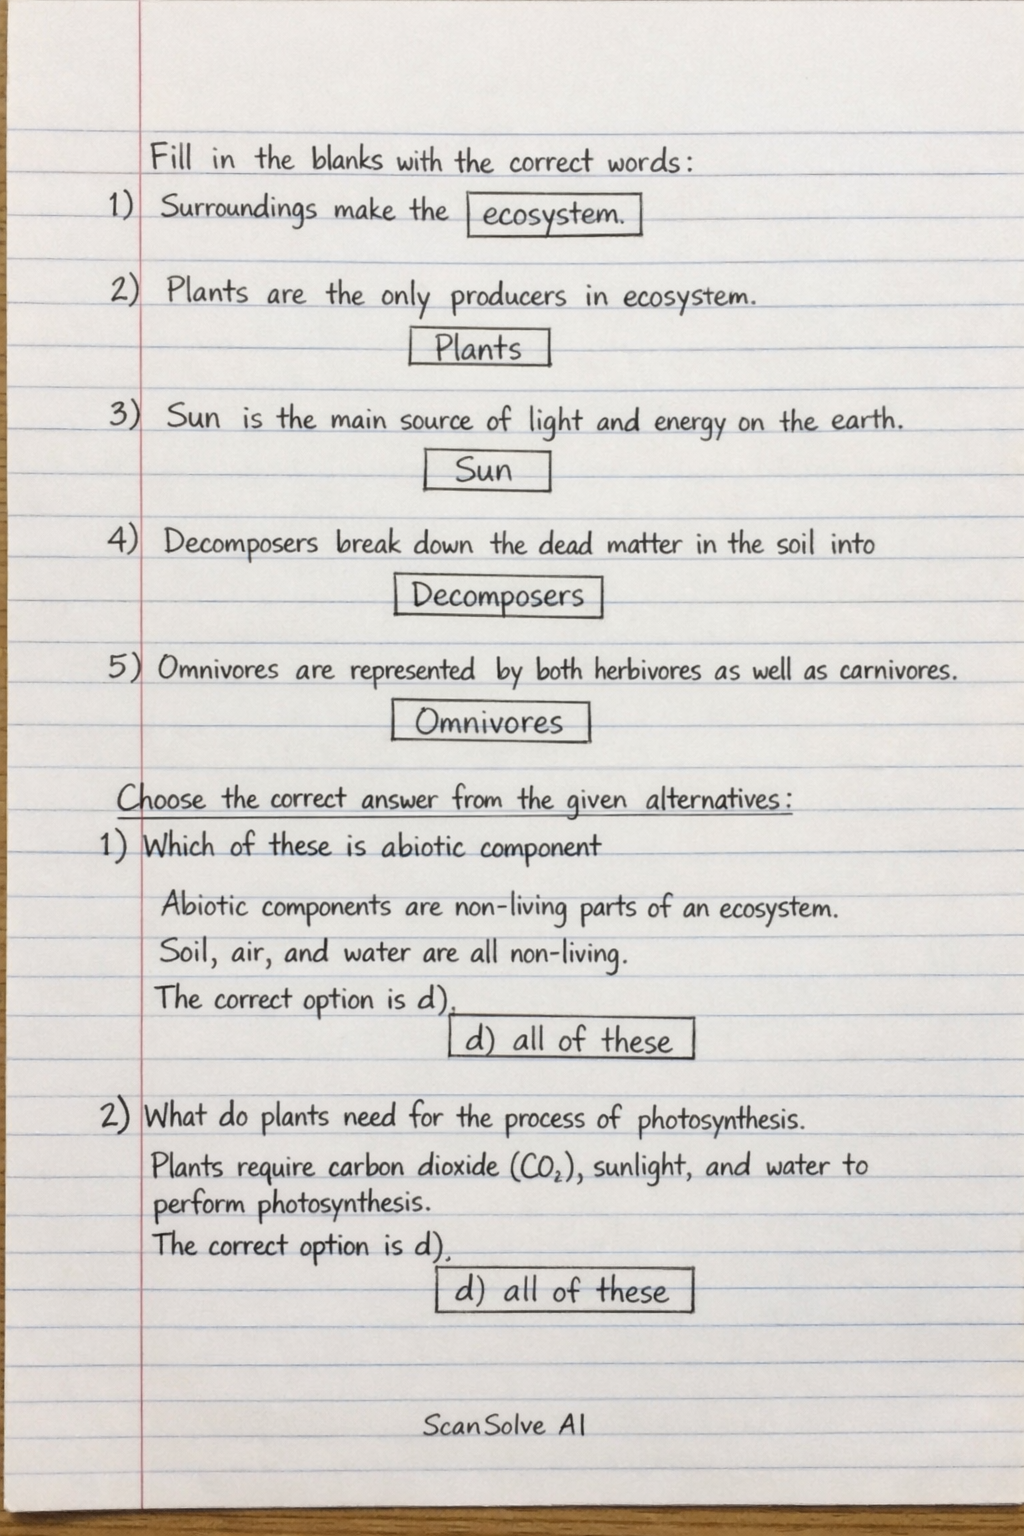 Fill in the blanks with the correct words:
1) Surroundings make the ecosystem.
2) Plants are the only producers in ecosystem.
Plants
3) Sun is the main source of light and energy on the earth.
Sun
4) Decomposers break down the dead matter in the soil into
Decomposers
5) Omnivores are represented by both herbivores as well as carnivores.
Omnivores
Choose the correct answer from the given alternatives:
1) Which of these is abiotic component
Abiotic components are non-living parts of an ecosystem.
Soil, air, and water are all non-living.
The correct option is d).
d) all of these
2) What do plants need for the process of photosynthesis.
Plants require carbon dioxide (CO₂), sunlight, and water to
perform photosynthesis.
The correct option is d).
d) all of these
ScanSolve AI